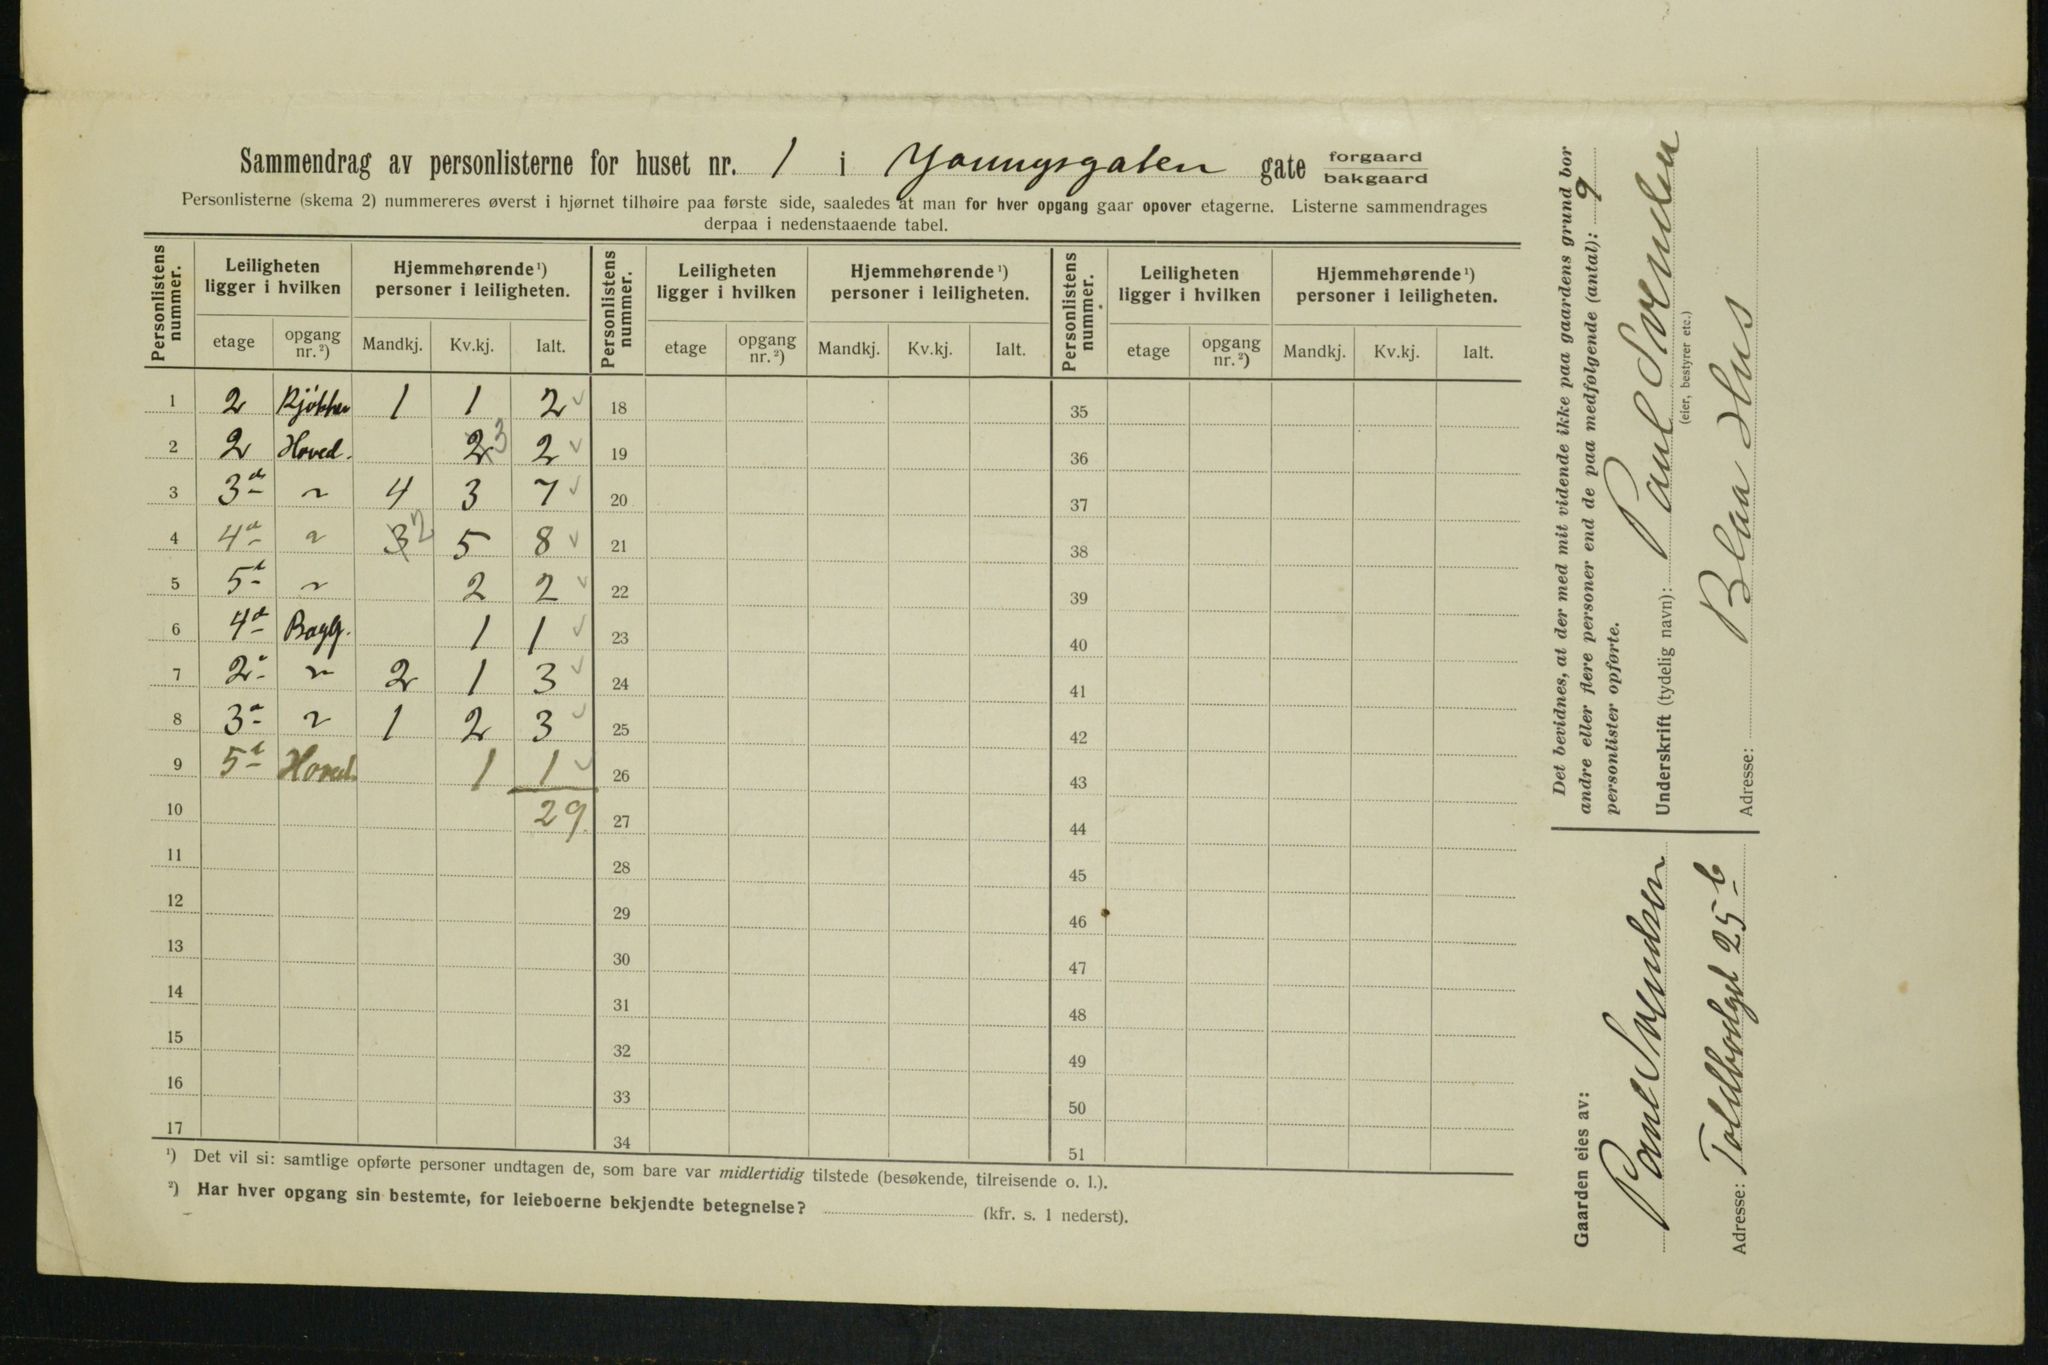 Sammendrag av personlisterne for huset nr. 1 i Youngsgaten gate forgaard bakgaard
Personlisterne (skema 2) nummereres øverst i hjørnet tilhøire paa første side, saaledes at man for hver opgang gaar opover etagerne. Listerne sammendrages
derpaa i nedenstaaende tabel.
Personlistens nummer. Leiligheten ligger i hvilken Hjemmehørende ¹) personer i leiligheten. Personlistens nummer. Leiligheten ligger i hvilken Hjemmehørende ¹) personer i leiligheten. Personlistens nummer. Leiligheten ligger i hvilken Hjemmehørende ¹) personer i leiligheten.
etage opgang nr. ²) Mandkj. Kv.kj. Ialt. etage opgang nr. ²) Mandkj. Kv.kj. Ialt. etage opgang nr. ²) Mandkj. Kv.kj. Ialt.
1 2 Kjøkken 1 1 2 18 35
2 2 Hoved. 2 3 2 19 36
3 3d " 4 3 7 20 37
4 4d " 3 2 5 8 21 38
5 5d " 2 2 22 39
6 4d Bagg. 1 1 23 40
7 2d " 2 1 3 24 41
8 3d " 1 2 3 25 42
9 5d Hoved. 1 1 26 43
10 29. 27 44
11 28 45
12 29 46
13 30 47
14 31 48
15 32 49
16 33 50
17 34 51
¹) Det vil si: samtlige opførte personer undtagen de, som bare var midlertidig tilstede (besøkende, tilreisende o. l.).
²) Har hver opgang sin bestemte, for leieboerne bekjendte betegnelse? (kfr. s. 1 nederst).
Det bevidnes, at der med mit vidende ikke paa gaardens grund bor
andre eller flere personer end de paa medfølgende (antal): 9
personlister opførte.
Underskrift (tydelig navn): Paul Svendsen
(eier, bestyrer etc.)
Adresse: Blaa Hus
Gaarden eies av:
Paul Svendsen
Adresse: Toldbodgt 25 b